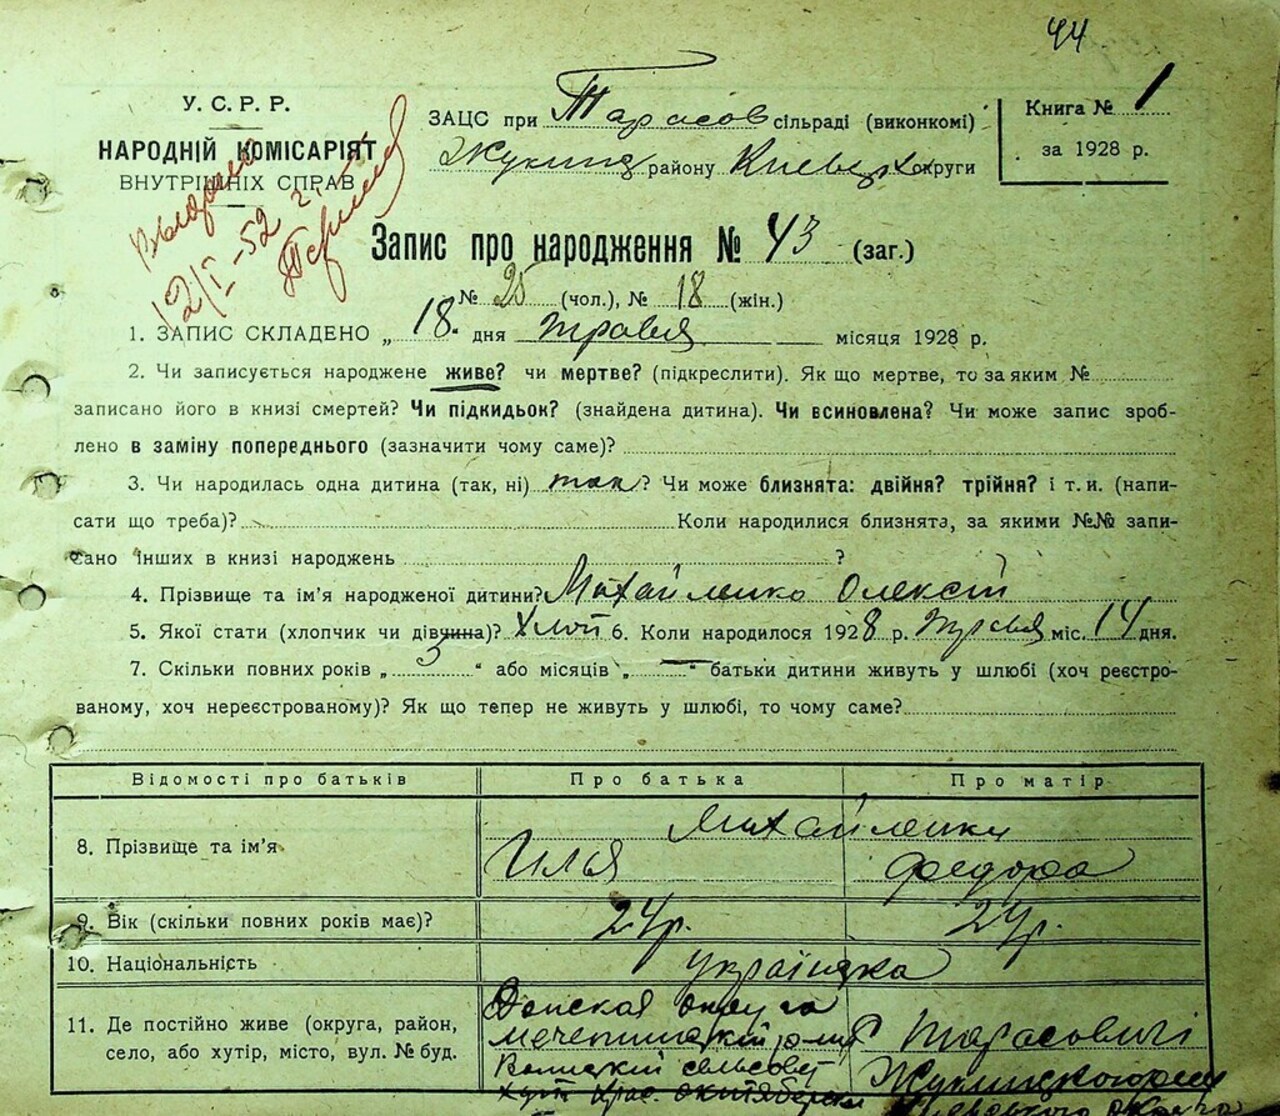 44
У. С. Р. Р.
НАРОДНІЙ КОМІСАРІЯТ
ВНУТРІШНІХ СПРАВ
12/I-52 г.
ЗАЦС при Тарасов сільраді (виконкомі)
району Києвск округи
Книга № 1
за 1928 р.
Запис про народження № 43 (заг.)
№ 25 (чол.), № 18 (жін.)
1. ЗАПИС СКЛАДЕНО „ 18 “ дня травня місяця 1928 р.
2. Чи записується народжене живе? чи мертве? (підкреслити). Як що мертве, то за яким №
записано його в книзі смертей? Чи підкидьок? (знайдена дитина). Чи всиновлена? Чи може запис зроб-
лено в заміну попереднього (зазначити чому саме)?
3. Чи народилась одна дитина (так, ні) так? Чи може близнята: двійня? трійня? і т. и. (напи-
сати що треба)? Коли народилися близнята, за якими №№ запи-
сано інших в книзі народжень ?
4. Прізвище та ім’я народженої дитини? Михайленко Олексій
5. Якої стати (хлопчик чи дівчина)? Хлоп 6. Коли народилося 1928 р. Травня міс. 14 дня.
7. Скільки повних років „ 3 “ або місяців „ — “ батьки дитини живуть у шлюбі (хоч реєстро-
ваному, хоч нереєстрованому)? Як що тепер не живуть у шлюбі, то чому саме?
Відомості про батьків Про батька Про матір
Михайленки
8. Прізвище та ім’я Илья Федора
9. Вік (скільки повних років має)? 24р. 24р.
10. Національність українка
11. Де постійно живе (округа, район,
село, або хутір, місто, вул. № буд.
Донская округа
Мечетинскій
сельсовет
Тарасовичі